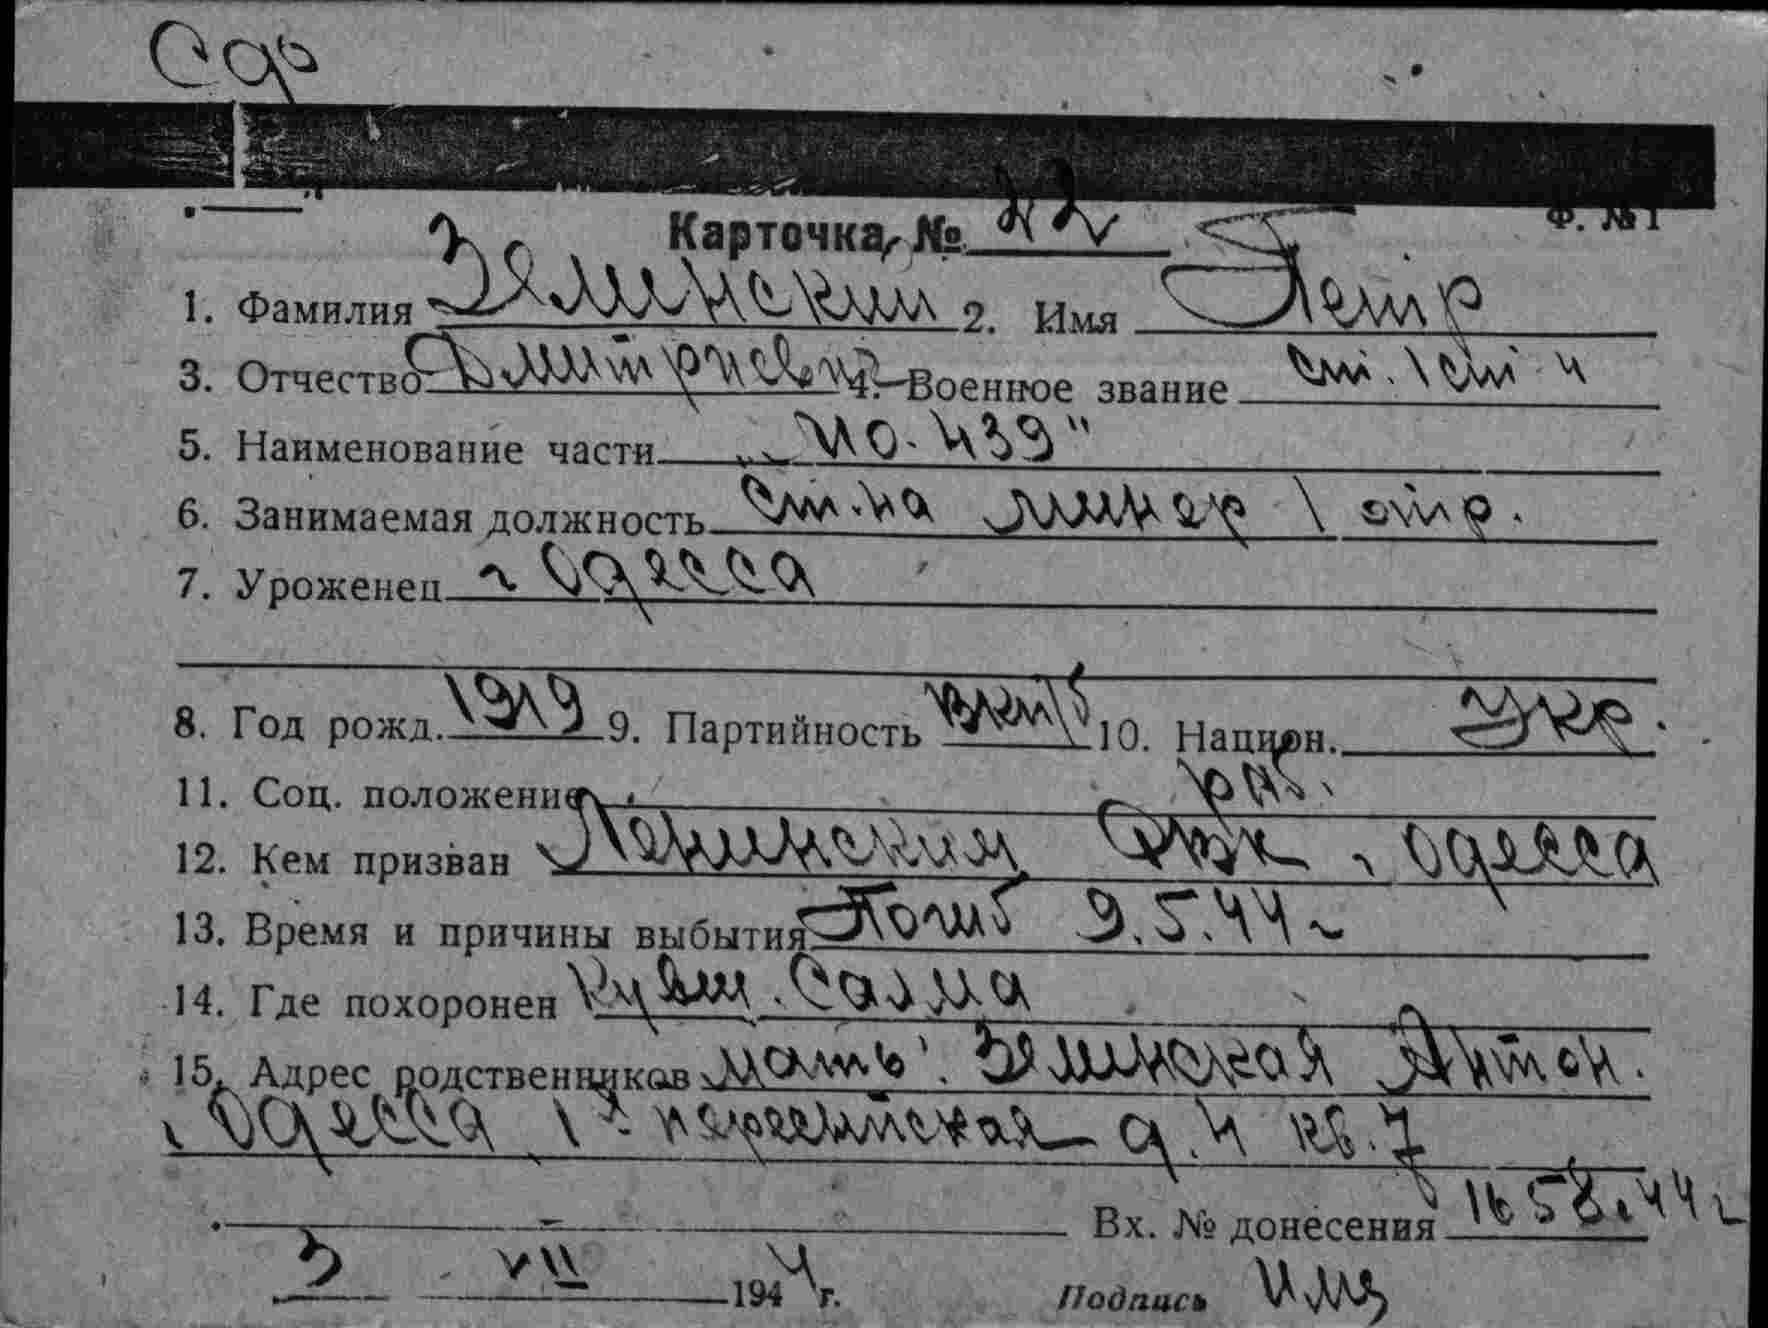 Сар
Карточка № 22 Ф. №1
1. Фамилия Зелинский 2. Имя Петр
3. Отчество Дмитриевич 4. Военное звание ст. лет-т
5. Наименование части „МО-439"
6. Занимаемая должность ст. на минер
7. Уроженец г Одесса
8. Год рожд. 1919 9. Партийность 10. Национ. Укр.
11. Соц. положение раб.
12. Кем призван Ленинским РВК г Одесса
13. Время и причины выбытия Погиб 9.5.44 г
14. Где похоронен
15. Адрес родственников мать. Зелинская Антон.
г Одесса д. 4 кв. 7
Вх. № донесения 44 г
3 VII 1944 г.
Подпись